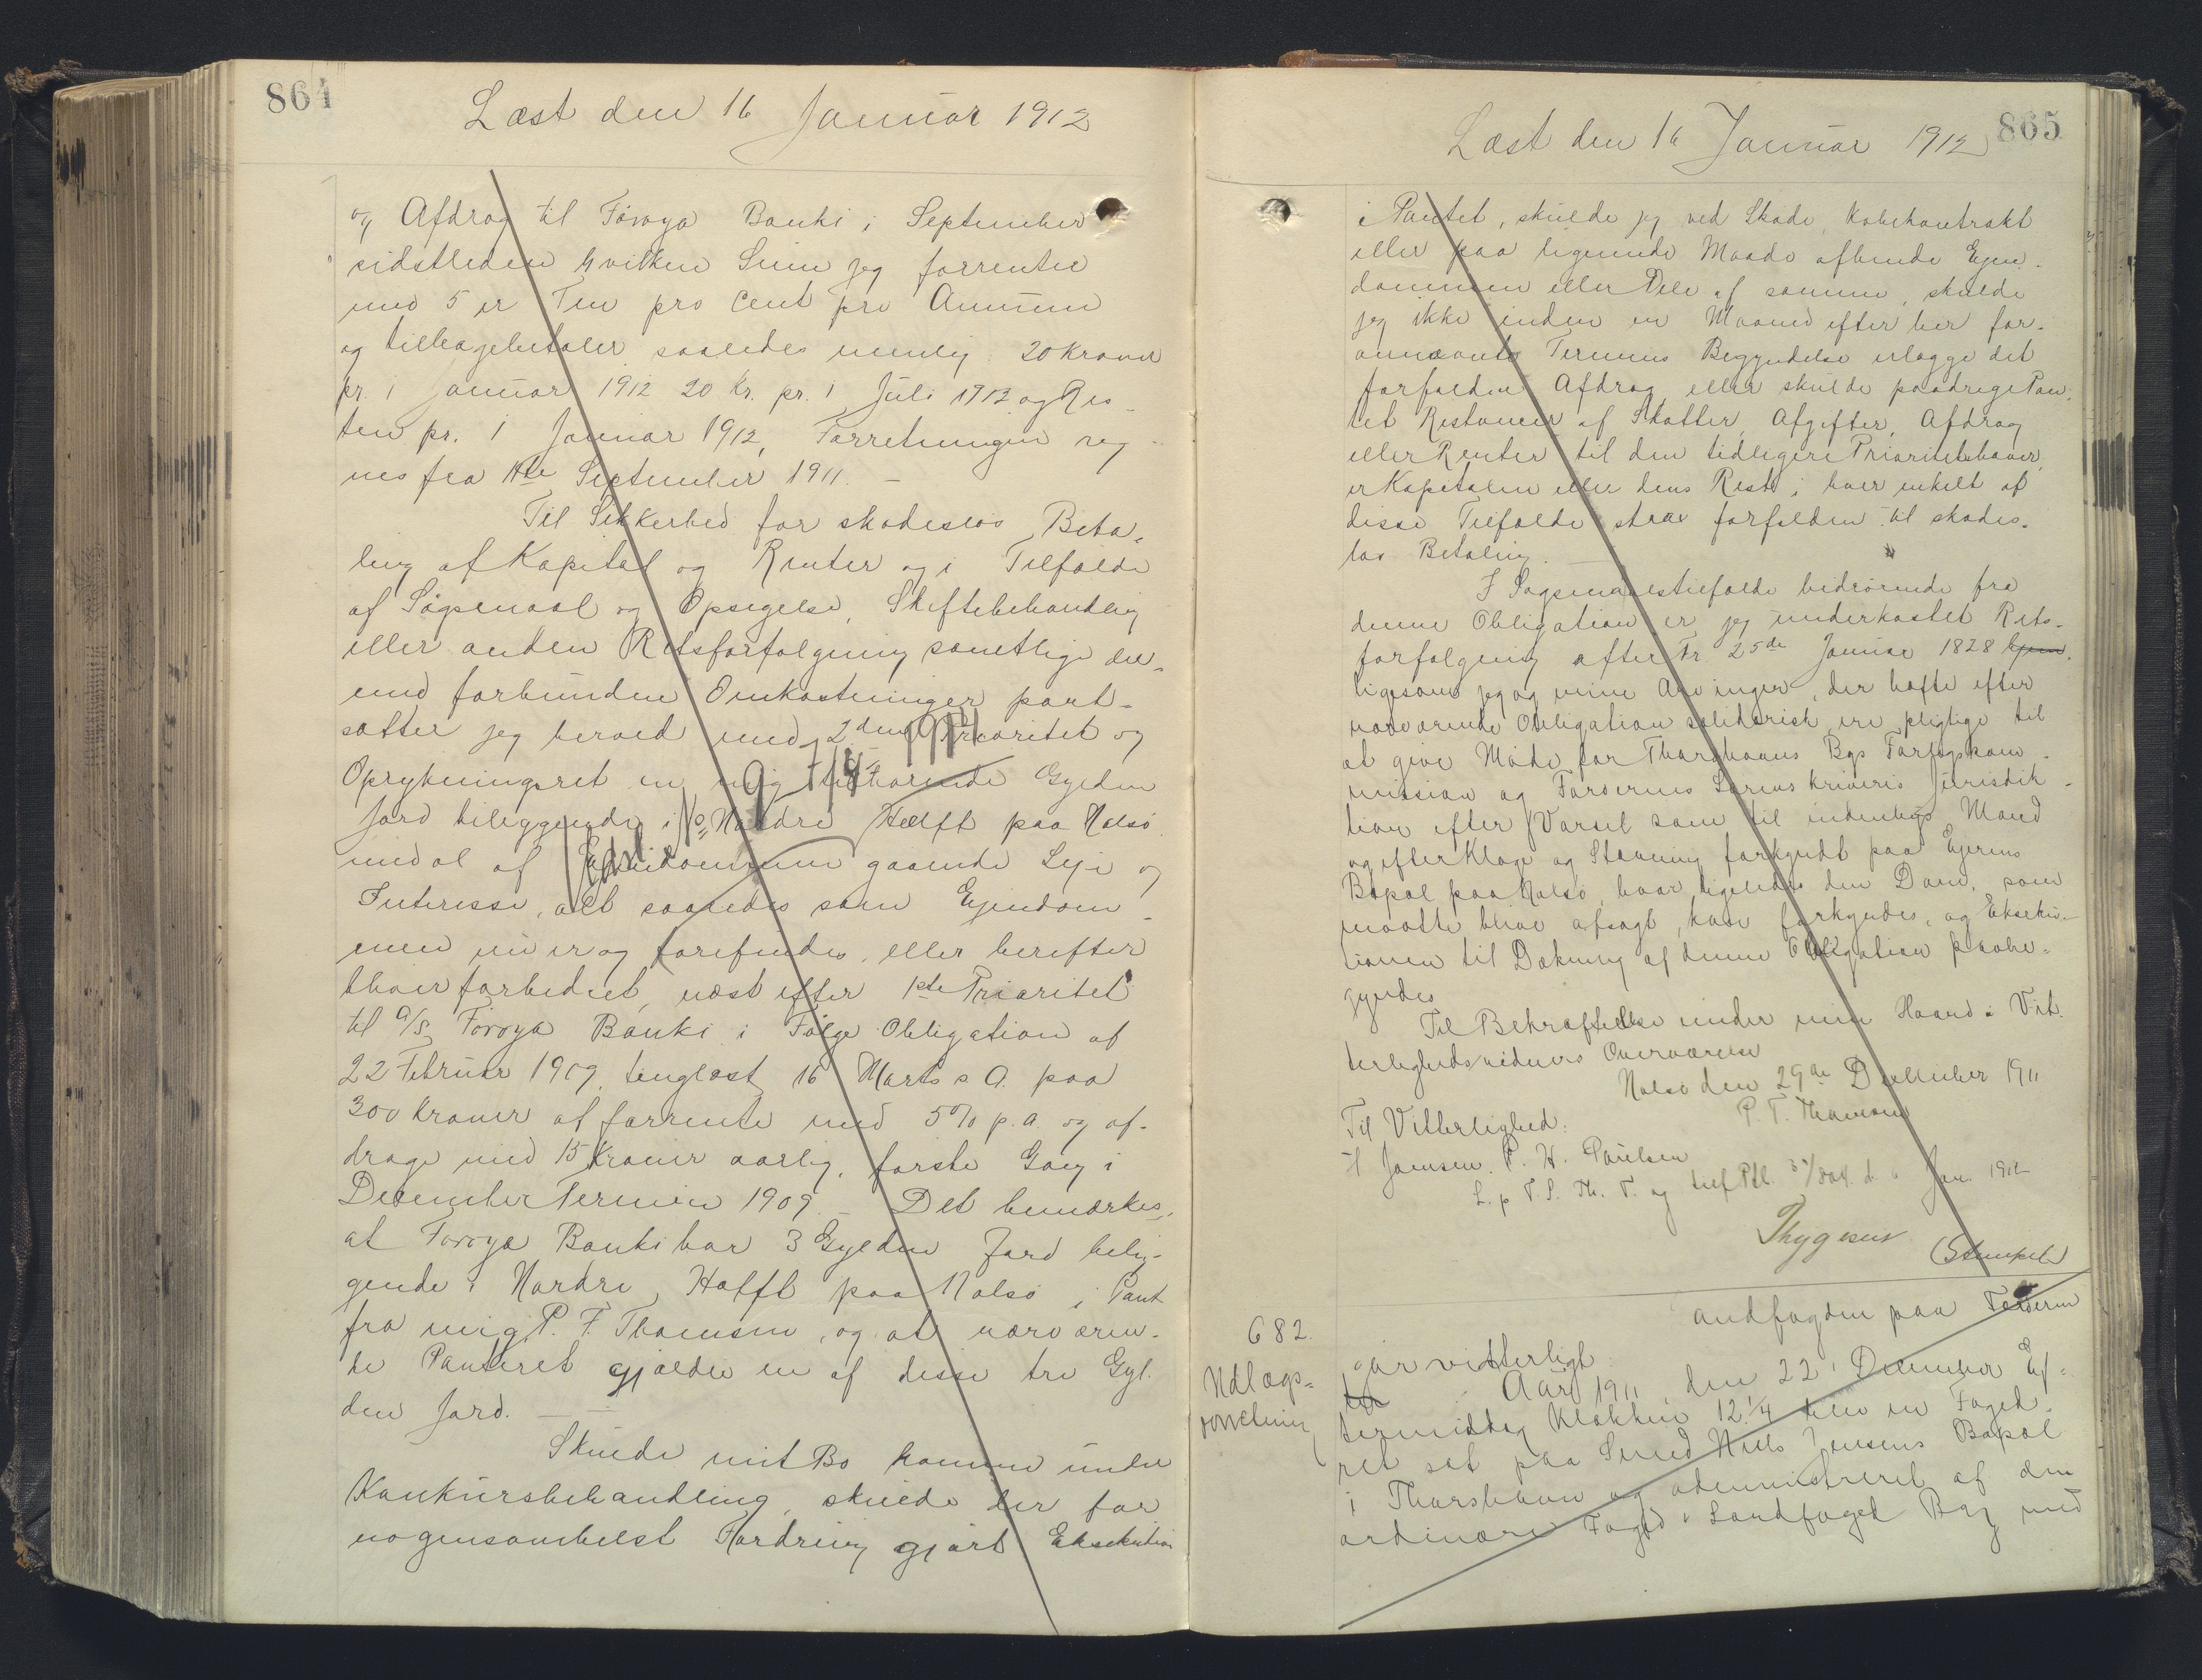 864
Læst den 16 Januar 1912
og Afdrag til Føroya Banki i September
sidstleden hvilken Sum jeg forrenter
med 5 er Fem pro Cent pro Annum
og tilbagebetaler saaledes nemlig 20 Kroner
pr. 1 Januar 1912 20 Kr. pr. 1 Juli 1912 og Res-
ten pr. 1 Januar 1912, Forretningen reg-
nes fra 11te September 1911. -
Til Sikkerhed for skadesløs Beta-
ling af Kapital og Renter og i Tilfælde
af Søgsmaal og Opsigelse, Skiftebehandling
eller anden Retsforfølgning samtlige der-
med forbundne Omkostninger pant-
sætter jeg herved med 2den Prioritet og
Oprykningsret en mig tilhørende Gylden
Jord beliggende i Nordre Hælft paa Nolsø
med al af Ejendommen gaaende Leje og
Interesse, alt saaledes som Ejendom-
men nu er og forefindes, eller herefter
bliver forbedret, næst efter 1ste Prioritet
til A/S Føroya Banki i Følge Obligation af
22 Februar 1909, tinglæst 16 Marts s. A. paa
300 Kroner at forrente med 5% p.a. og af-
drage med 15 Kroner aarlig, første Gang i
December Termin 1909. - Det bemærkes,
at Føroya Banki har 3 Gylden Jord belig-
gende i Nordre Hælft paa Nolsø i Pant
fra mig P. F. Thomsen, og at nærværen-
de Panteret gjælder en af disse tre Gyl-
den Jord. -
Skulde mit Bo komme under
Konkursbehandling, skulde der for
nogensomhelst Fordring gjort Eksekution
865
Læst den 16 Januar 1912
i Pantet, skulde jeg ved Skøde, Købekontrakt
eller paa lignende Maade afhænde Ejen-
dommen eller Dele af samme, skulde
jeg ikke inden en Maaned efter her for-
annævnte Termins Begyndelse erlægge det
forfaldne Afdrag, eller skulde paadrage Pan-
tet Restancer af Skatter, Afgifter, Afdrag
eller Renter til den tidligere Prioritetshaver,
er Kapitalen eller dens Rest i hver enkelt af
disse Tilfælde strax forfalden til skades-
løs Betaling.
I Søgsmaalstilfælde hidrørende fra
denne Obligation er jeg underkastet Rets-
forfølgning efter Fr. 25de Januar 1828
ligesom jeg og mine Arvinger, der hæfte efter
nærværende Obligation solidarisk, ere pligtige til
at give Møde for Thorshavns Bys Forligskom-
mission og Færøernes Sorenskriveris Jurisdik-
tion efter Varsel som til indenbys Mand
og efter Klage og Stævning forkyndt paa Ejerens
Bopæl paa Nolsø, hvor ligeledes den Dom, som
maatte blive afsagt, kan forkyndes, og EksekU-
tionen til Dækning af denne Obligation paabe-
gyndes
Til Bekræftelse under min Haand i Vit-
terlighedsvidners Overværelse
Nolsø den 29de December 1911
P. F. Thomsen
Til Vitterlighed:
H Joensen. P. H. Poulsen
Thygesen
(Stempel)
682.
Udlægs-
forretning
Landfogden paa Færøerne
gør vitterligt:
Aar 1911 den 22 December Ef-
termiddag Klokken 12 1/4 blev en Foged-
ret sat paa Smed Niels Jensens Bopæl
i Thorshavn og administreret af den
ordinære Foged, Landfoged Bry med